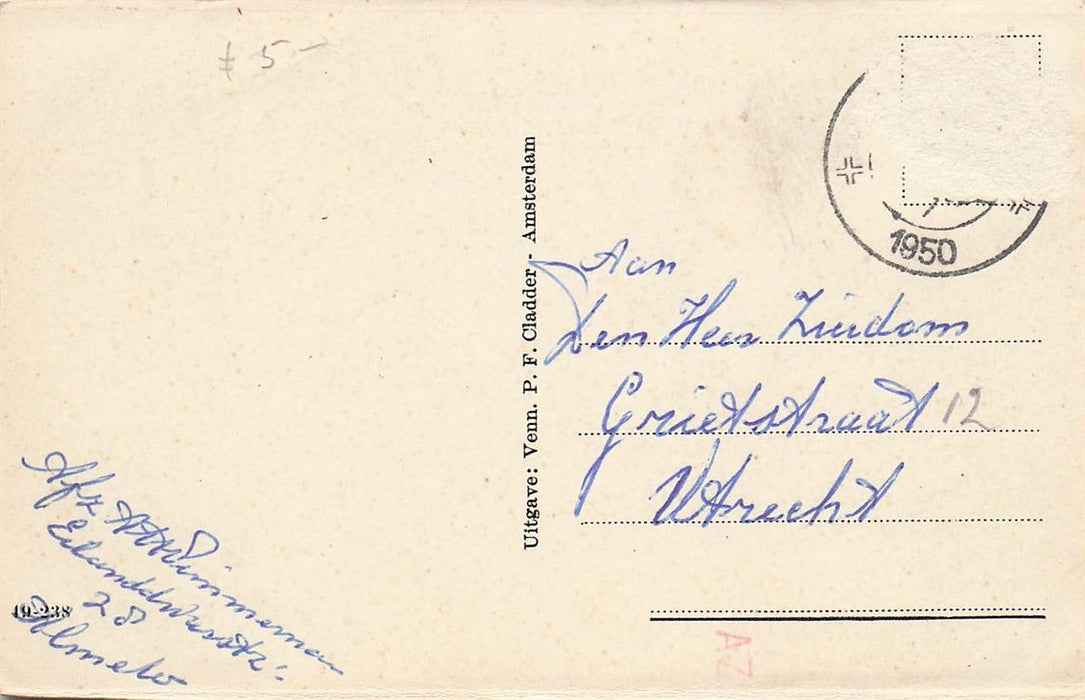 ƒ 5-
1950
Uitgave: Venn. P. F. Cladder - Amsterdam
Aan
Den Heer Zuidam
Grietstraat 12
Utrecht
Afz
28
Almelo
49-238
AZ